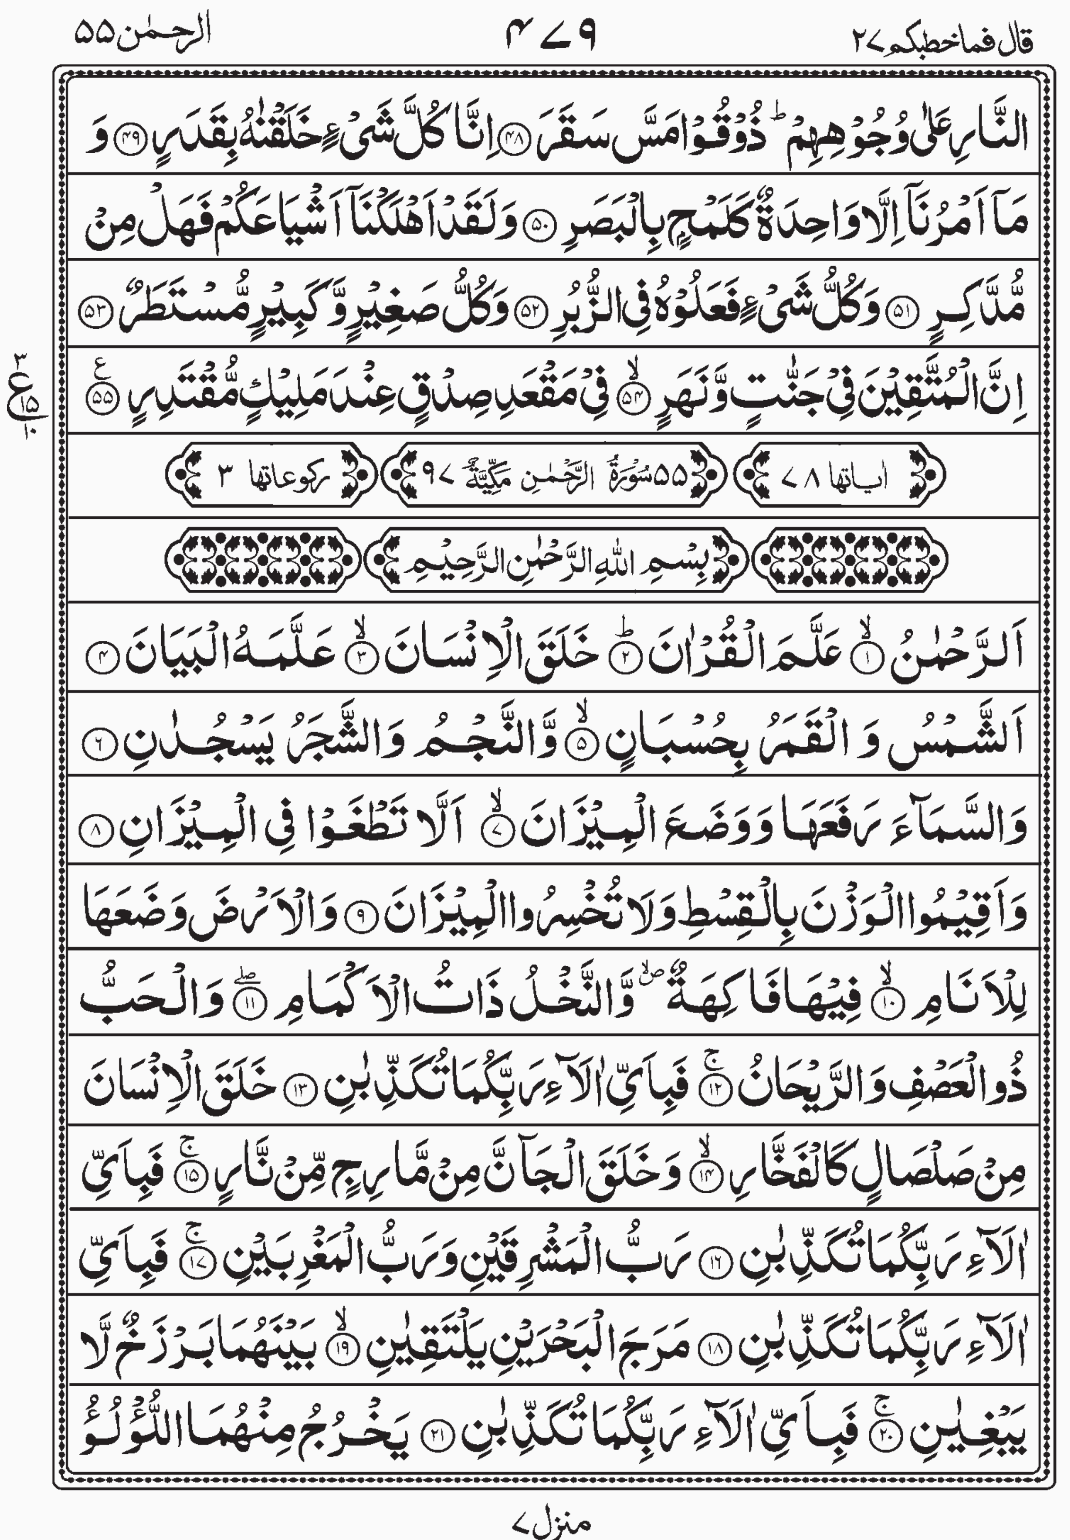 قال فماخطبکم ۲۷ ۴۷۹ الرحمٰن ۵۵
النَّارِ عَلٰى وُجُوْهِهِمْ ؕ ذُوْقُوْا مَسَّ سَقَرَ ۴۸ اِنَّا كُلَّ شَىْءٍ خَلَقْنٰهُ بِقَدَرٍ ۴۹ وَ
مَاۤ اَمْرُنَاۤ اِلَّا وَاحِدَةٌ كَلَمْحٍۭ بِالْبَصَرِ ۵۰ وَلَقَدْ اَهْلَكْنَاۤ اَشْيَاعَكُمْ فَهَلْ مِنْ
مُّدَّكِرٍ ۵۱ وَكُلُّ شَىْءٍ فَعَلُوْهُ فِى الزُّبُرِ ۵۲ وَكُلُّ صَغِيْرٍ وَّكَبِيْرٍ مُّسْتَطَرٌ ۵۳
اِنَّ الْمُتَّقِيْنَ فِىْ جَنّٰتٍ وَّنَهَرٍ ۙ ۵۴ فِىْ مَقْعَدِ صِدْقٍ عِنْدَ مَلِيْكٍ مُّقْتَدِرٍ ۵۵ ع
۳ ع ۱۵ ۱۰
اٰیاتها ۷۸ ۵۵ سُوْرَةُ الرَّحْمٰنِ مَكِّيَّةٌ ۹۷ ركوعاتها ۳
بِسْمِ اللّٰهِ الرَّحْمٰنِ الرَّحِيْمِ
اَلرَّحْمٰنُ ۙ ۱ عَلَّمَ الْقُرْاٰنَ ؕ ۲ خَلَقَ الْاِنْسَانَ ۙ ۳ عَلَّمَهُ الْبَيَانَ ۴
اَلشَّمْسُ وَ الْقَمَرُ بِحُسْبَانٍ ۙ ۵ وَّالنَّجْمُ وَالشَّجَرُ يَسْجُدٰنِ ۶
وَالسَّمَآءَ رَفَعَهَا وَوَضَعَ الْمِيْزَانَ ۙ ۷ اَلَّا تَطْغَوْا فِى الْمِيْزَانِ ۸
وَاَقِيْمُوا الْوَزْنَ بِالْقِسْطِ وَلَا تُخْسِرُوا الْمِيْزَانَ ۹ وَالْاَرْضَ وَضَعَهَا
لِلْاَنَامِ ۙ ۱۰ فِيْهَا فَاكِهَةٌ وَّالنَّخْلُ ذَاتُ الْاَكْمَامِ ۖ ۱۱ وَالْحَبُّ
ذُو الْعَصْفِ وَالرَّيْحَانُ ۚ ۱۲ فَبِاَىِّ اٰلَآءِ رَبِّكُمَا تُكَذِّبٰنِ ۱۳ خَلَقَ الْاِنْسَانَ
مِنْ صَلْصَالٍ كَالْفَخَّارِ ۙ ۱۴ وَخَلَقَ الْجَآنَّ مِنْ مَّارِجٍ مِّنْ نَّارٍ ۚ ۱۵ فَبِاَىِّ
اٰلَآءِ رَبِّكُمَا تُكَذِّبٰنِ ۱۶ رَبُّ الْمَشْرِقَيْنِ وَرَبُّ الْمَغْرِبَيْنِ ۚ ۱۷ فَبِاَىِّ
اٰلَآءِ رَبِّكُمَا تُكَذِّبٰنِ ۱۸ مَرَجَ الْبَحْرَيْنِ يَلْتَقِيٰنِ ۙ ۱۹ بَيْنَهُمَا بَرْزَخٌ لَّا
يَبْغِيٰنِ ۚ ۲۰ فَبِاَىِّ اٰلَآءِ رَبِّكُمَا تُكَذِّبٰنِ ۲۱ يَخْرُجُ مِنْهُمَا اللُّؤْلُؤُ
منزل ۷